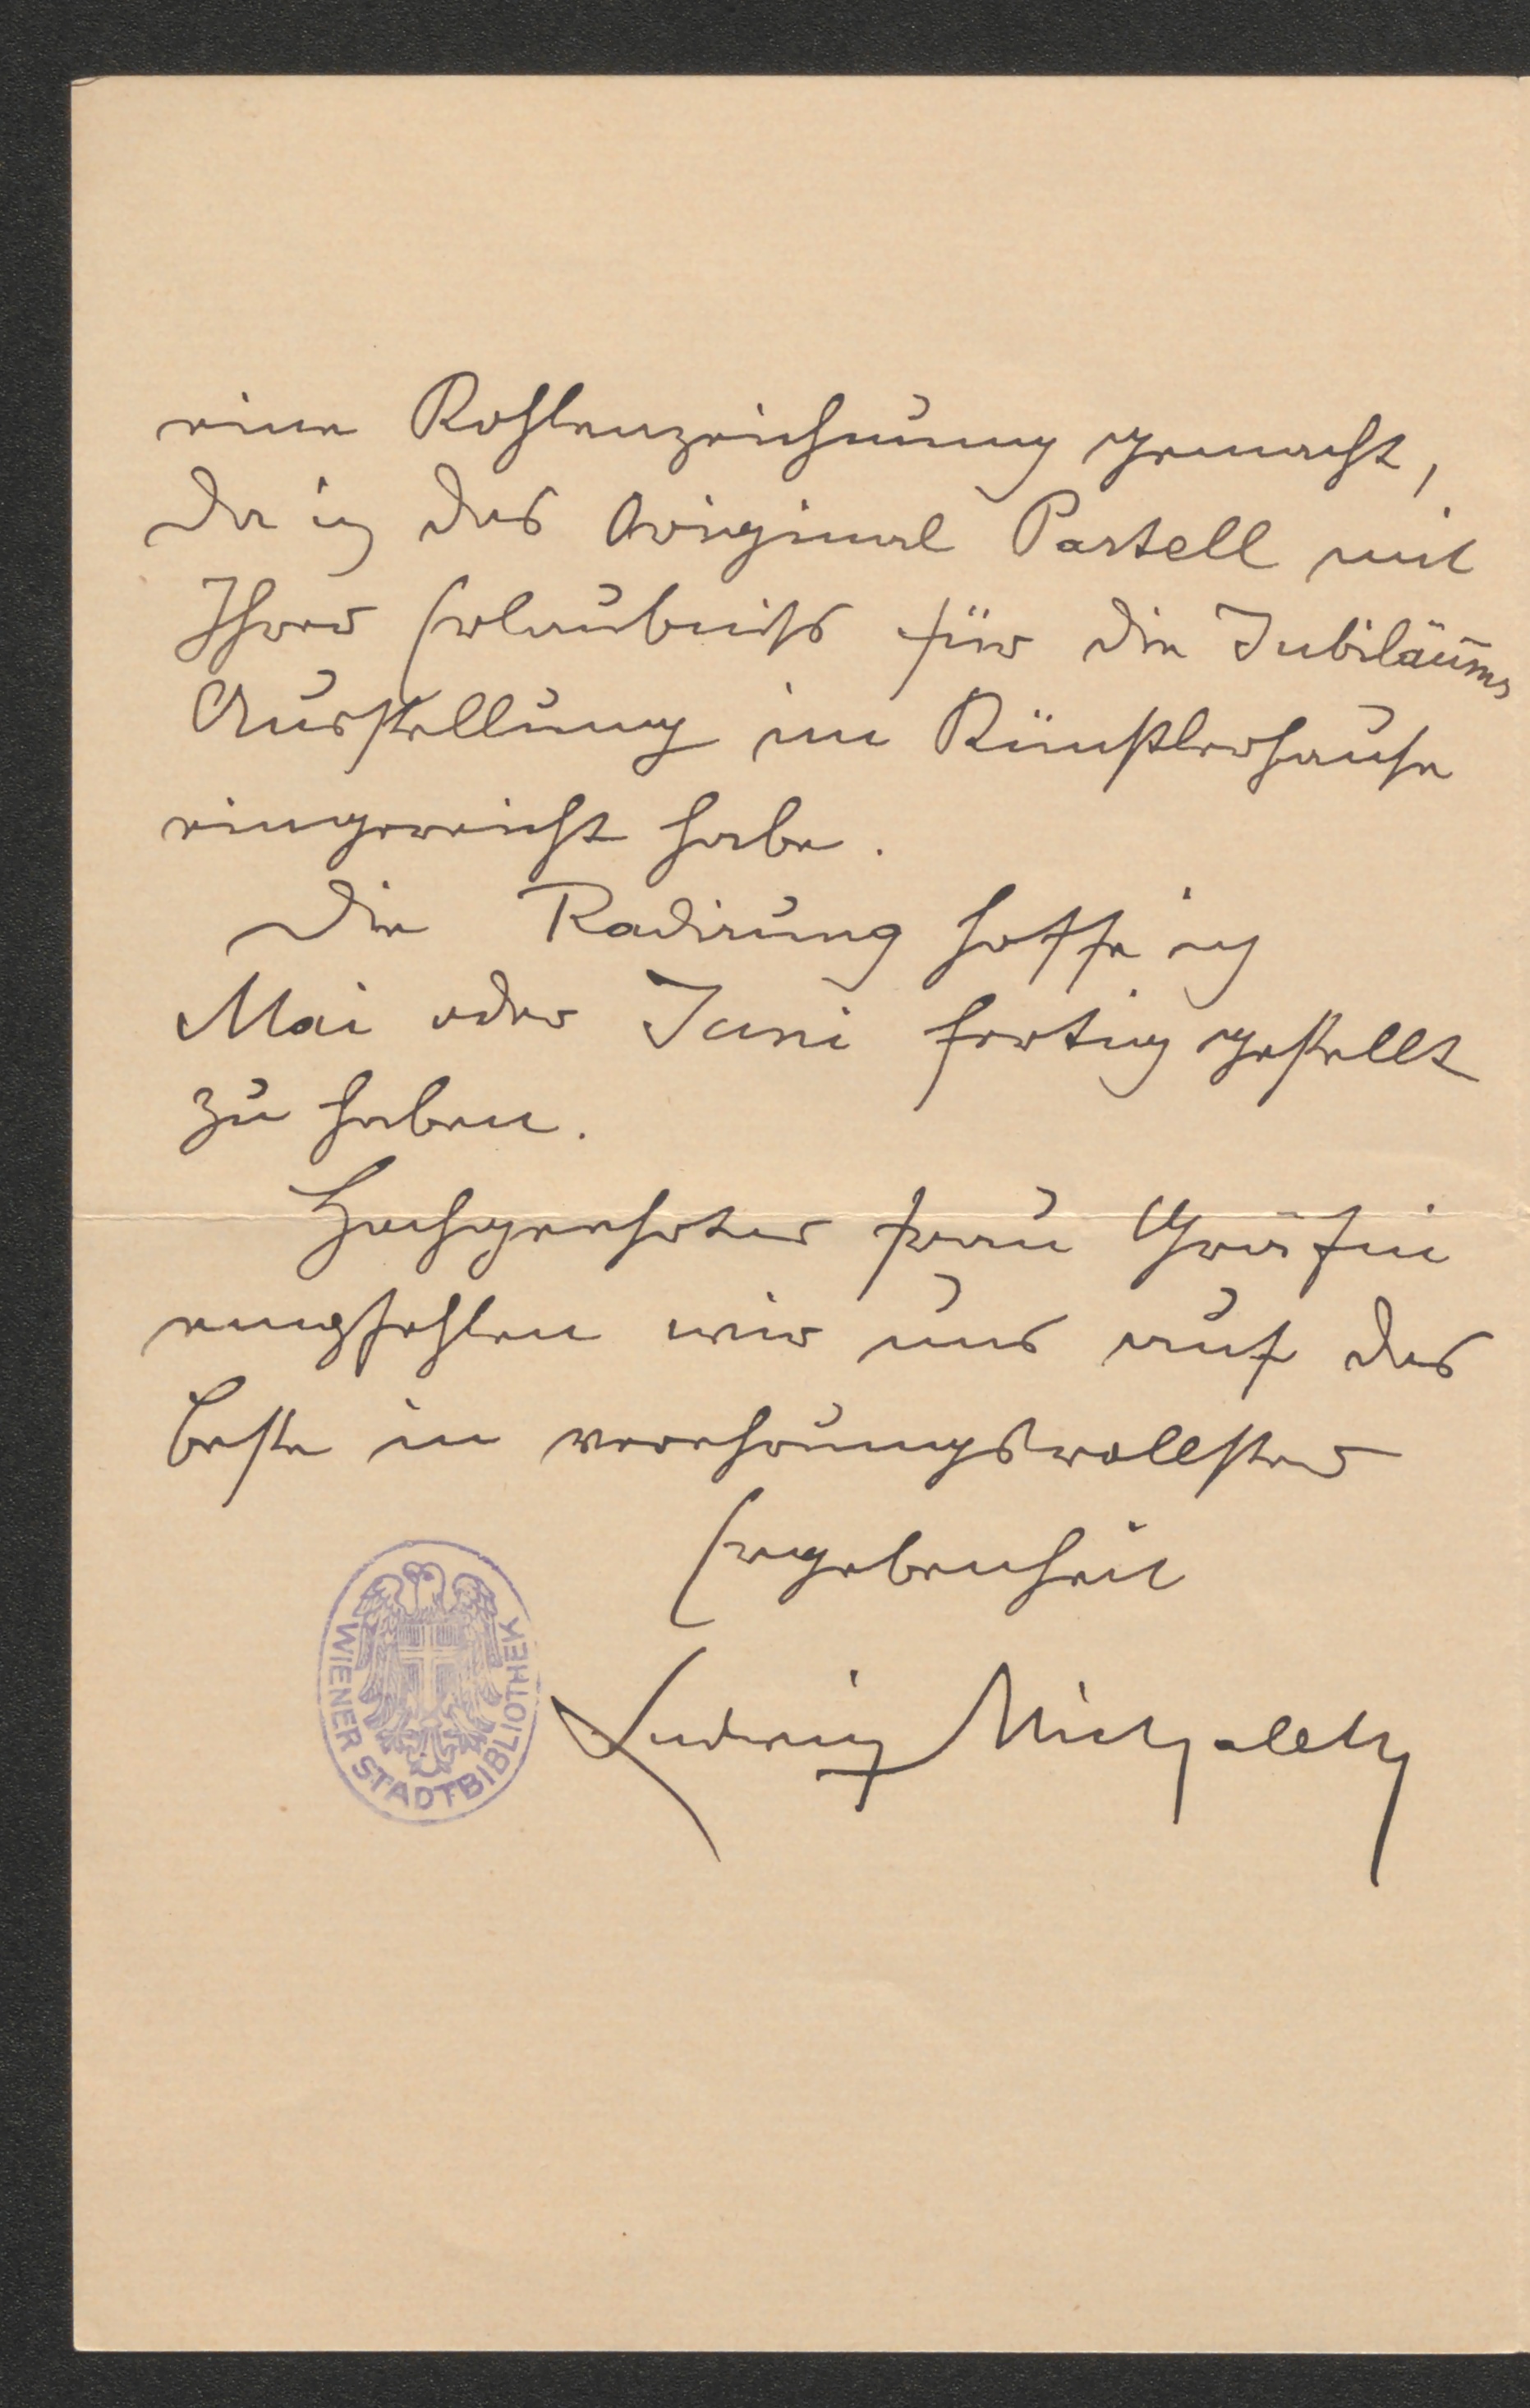 eine Kohlenzeichnung gemacht,
da ich das Original Pastell mit
Ihrer Erlaubniß für die Jubiläums
Ausstellung im Künstlerhause
eingereicht habe.
Die Radirung hoffe ich
Mai oder Juni fertig gestellt
zu haben.
Hochgeehrter Frau Gräfin
empfehlen wir uns auf das
beste in verehrungsvollster
Ergebenheit
Ludwig Michalek
WIENER STADTBIBLIOTHEK